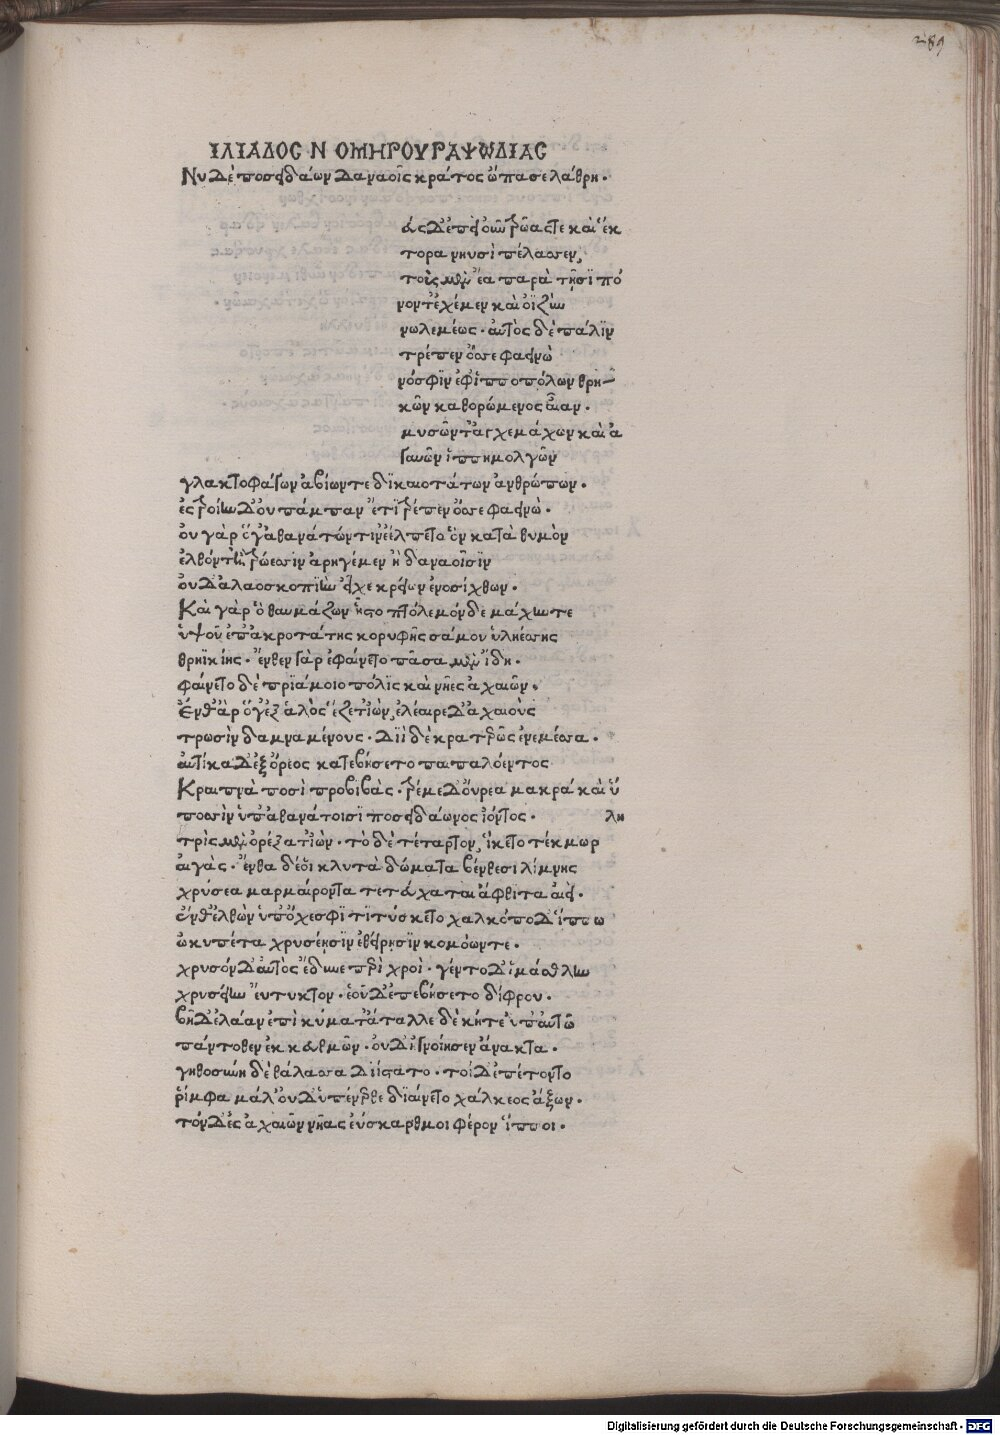 289
ΙΛΙΑΔΟΣ Ν ΟΜΗΡΟΥ ΡΑΨΩΔΙΑΣ
Νυ δὲ ποσειδάων δαναοῖς κράτος ὤπασε λάθρη.
εὺς δ' ἐπεὶ οὖν τρῶας τε καὶ ἕκ
τορα νηυσὶ πέλασσεν,
τοὺς μὲν ἔα παρὰ τῇσϊ πό
νον τ' ἐχέμεν καὶ οϊζὺν
νωλεμέως. αὐτὸς δὲ πάλϊν
τρέπεν ὄσσε φαεινὼ
νόσφϊν ἐφ' ἱπποπόλων θρη
κῶν καθορώμενος αἶαν.
μυσῶν τ' ἀγχεμάχων καὶ ἀ
γαυῶν ἱππημολγῶν
γλακτοφάγων ἀβίων τε δικαιοτάτων ἀνθρώπων.
ἐς τροίην δ' οὐ πάμπαν ἔτϊ τρέπεν ὄσσε φαεινώ.
οὐ γὰρ ὅγ' ἀθανάτων τιν' ἐέλπετο ὃν κατὰ θυμὸν
ἐλθόντ' ἢ τρώεσσιν ἀρηγέμεν ἢ δαναοῖσϊν
οὐδ' ἀλαοσκοπϊὴν εἶχε κρείων ἐνοσίχθων.
Καὶ γὰρ ὁ θαυμάζων ἧστο πτόλεμόν δε μάχην τε
ὑψοῦ ἐπ' ἀκροτάτης κορυφῆς σάμου ὑληέσσης
θρηϊκίης. ἔνθεν γὰρ ἐφαίνετο πᾶσα μὲν ἴδη.
φαίνετο δὲ πρϊάμοιο πόλϊς καὶ νῆες ἀχαιῶν.
Ἔνθ' ἄρ ὅγ' ἐξ ἁλὸς ἕζετ' ϊὼν, ἐλέαιρε δ' ἀχαιοὺς
τρωσὶν δαμναμένους. διῒ δὲ κρατερῶς ἐνεμέσσα.
αὐτίκα δ' ἐξ ὄρεος κατεβήσετο παπαλόεντος
Κραιπνὰ ποσὶ προβιβὰς. τρέμε δ' οὔρεα μακρὰ καὶ ὕ
λη
ποσσὶν ὑπ' ἀθανάτοισι ποσειδάωνος ἰόντος.
τρὶς μὲν ὀρέξατ' ϊὼν. τὸ δὲ τέταρτον, ἵκετο τέκμωρ
αἰγὰς. ἔνθα δέ οἱ κλυτὰ δώματα βένθεσι λίμνης
χρύσεα μαρμαίροντα τετεύχαται ἄφθιτα αἰεί.
ἔνθ' ἐλθὼν ὑπ' ὄχεσφϊ τϊτύσκετο χαλκόποδ' ἵππω
ὠκυπέτα χρυσέησϊν ἐθείρησϊν κομόωντε.
χρυσὸν δ' αὐτὸς ἔδυνε περὶ χροὶ. γέντο δ' ἱμάσθλην
χρυσείην εὔτυκτον. ἑοῦ δ' ἐπεβήσετο δίφρου.
βῆ δ' ἐλάαν ἐπὶ κύματ' ἄταλλε δὲ κήτε' ὑπ' αὐτῶ
πάντοθεν ἐκ κευθμῶν. οὐδ' ἠγνοίησεν ἄνακτα.
γηθοσύνη δὲ θάλασσα διΐστατο. τοὶ δ' ἐπέτοντο
ῥίμφα μάλ' οὐδ' ὑπένερθε διαίνετο χάλκεος ἄξων.
τὸν δ' ἐς ἀχαιῶν νῆας ἐύσκαρθμοι φέρον ἵπποι.
Digitalisierung gefördert durch die Deutsche Forschungsgemeinschaft - DFG